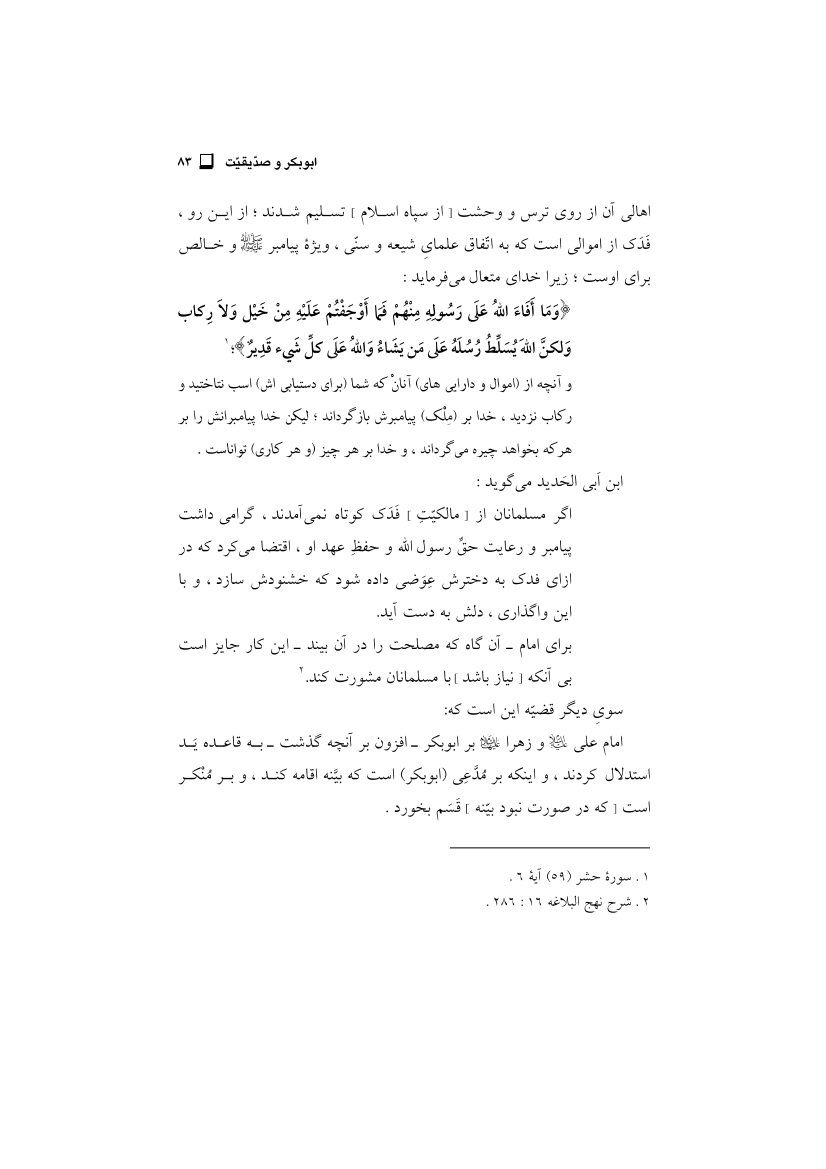 ابوبکر و صدّیقیّت ❑ ٨٣
اهالی آن از روی ترس و وحشت [ از سپاه اسلام ] تسلیم شدند ؛ از این رو ،
فَدَک از اموالی است که به اتّفاق علمایِ شیعه و سنّی ، ویژهٔ پیامبر ﷺ و خالص
برای اوست ؛ زیرا خدای متعال می‌فرماید :
﴿وَمَا أَفَاءَ اللهُ عَلَى رَسُولِهِ مِنْهُمْ فَمَا أَوْجَفْتُمْ عَلَيْهِ مِنْ خَيْل وَلاَ رِكاب
وَلكنَّ اللهَ يُسَلِّطُ رُسُلَهُ عَلَى مَن يَشَاءُ وَاللهُ عَلَى كلِّ شَيء قَدِيرٌ﴾؛ ١
و آنچه از (اموال و دارایی های) آنانْ که شما (برای دستیابی اش) اسب نتاختید و
رکاب نزدید ، خدا بر (مِلْک) پیامبرش بازگرداند ؛ لیکن خدا پیامبرانش را بر
هرکه بخواهد چیره می‌گرداند ، و خدا بر هر چیز (و هر کاری) تواناست .
ابن اَبی الحَدید می‌گوید :
اگر مسلمانان از [ مالکیّتِ ] فَدَک کوتاه نمی‌آمدند ، گرامی داشت
پیامبر و رعایت حقِّ رسول الله و حفظِ عهد او ، اقتضا می‌کرد که در
ازای فدک به دخترش عِوَضی داده شود که خشنودش سازد ، و با
این واگذاری ، دلش به دست آید.
برای امام ـ آن گاه که مصلحت را در آن بیند ـ این کار جایز است
بی آنکه [ نیاز باشد ] با مسلمانان مشورت کند. ٢
سویِ دیگر قضیّه این است که:
امام علی علیه السلام و زهرا علیها السلام بر ابوبکر ـ افزون بر آنچه گذشت ـ به قاعده یَد
استدلال کردند ، و اینکه بر مُدَّعِی (ابوبکر) است که بیَّنه اقامه کند ، و بر مُنْکر
است [ که در صورت نبود بیّنه ] قَسَم بخورد .
١ . سورهٔ حشر (٥٩) آیهٔ ٦ .
٢ . شرح نهج البلاغه ١٦ : ٢٨٦ .